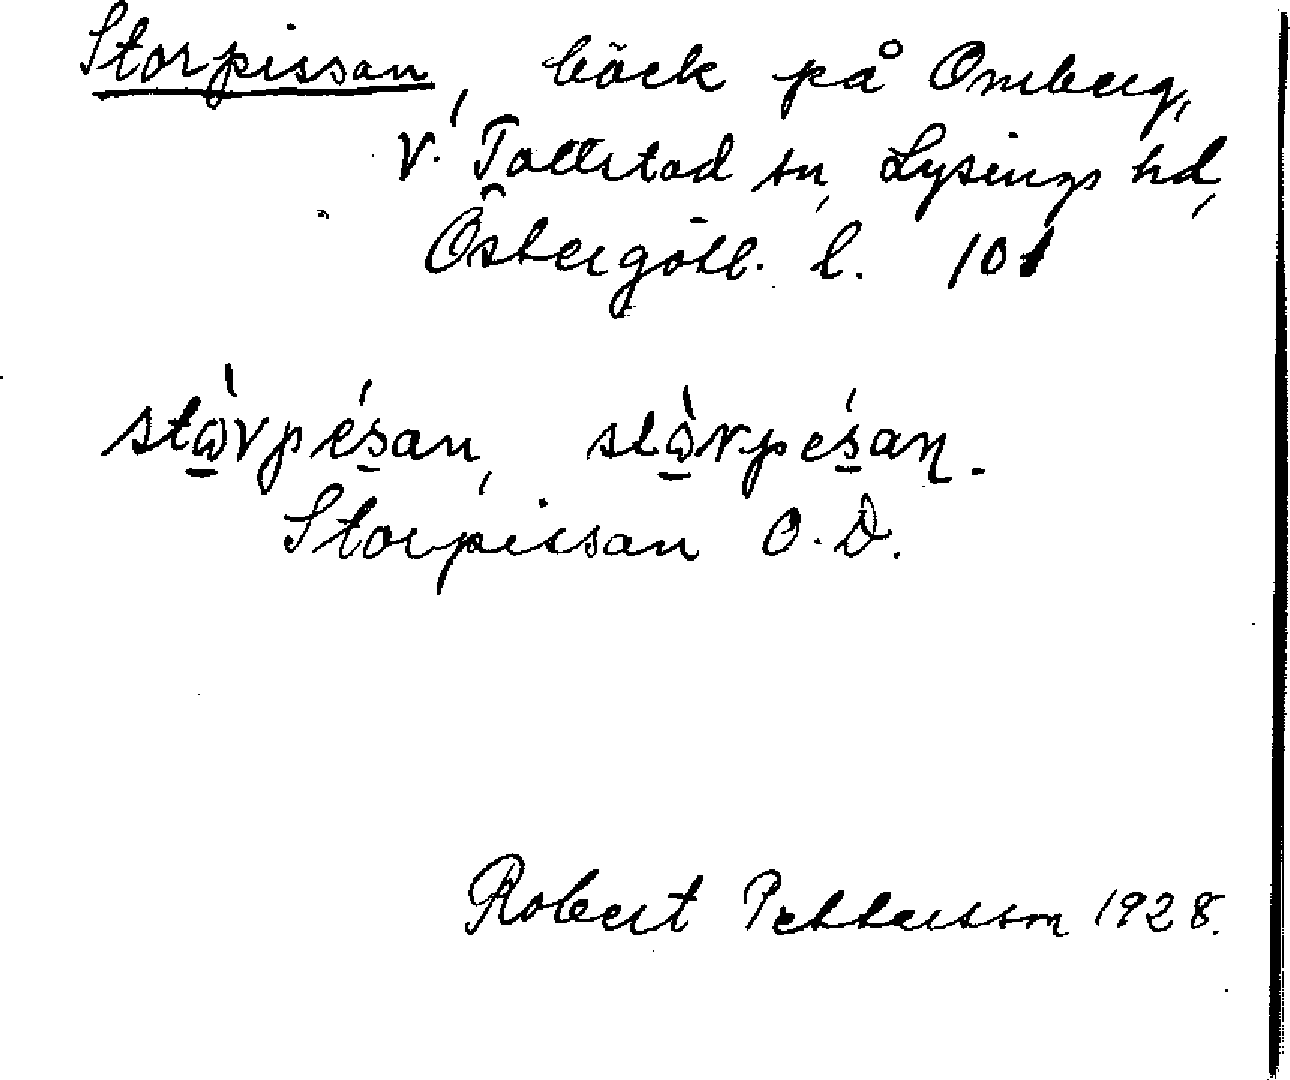 Storpissan, bäck på Omberg,
V. Tollstad sn, Lysings hd,
Östergötl. l. 101
Storpissan O.D.
Robert Pettersson 1928.